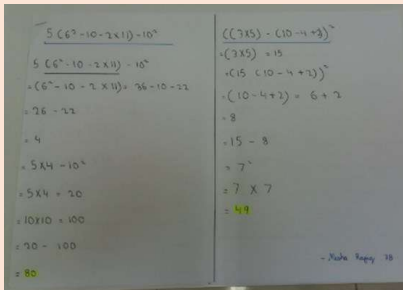 5 (6² - 10 - 2 x 11) - 10²
5 (6² - 10 - 2 x 11) - 10²
= (6² - 10 - 2 x 11) = 36 - 10 - 22
= 26 - 22
= 4
= 5 x 4 - 10²
= 5 x 4 = 20
= 10 x 10 = 100
= 20 - 100
= 80
((3 x 5) - (10 - 4 + 2))²
= (3 x 5) = 15
= (15 (10 - 4 + 2))²
= (10 - 4 + 2) = 6 + 2
= 8
= 15 - 8
= 7²
= 7 x 7
= 49